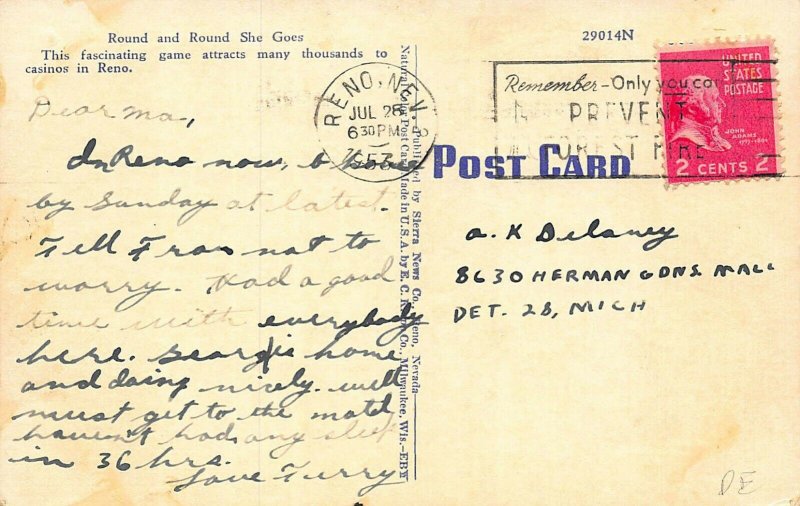 Round and Round She Goes
This fascinating game attracts many thousands to
casinos in Reno.
29014N
Dear ma,
In Reno now, b
by Sunday at latest.
Tell Fran not to
worry. Had a good
time with everybody
here. Georgie home
and doing nicely. well
must get to the motel
haven't had any sleep
in 36 hrs.
Love Turry
RENO, NEV.
JUL 28
6 30 PM
1953
Published by Sierra News Co., Reno, Nevada
Natural Color Post Card Made in U.S.A. by E. C. Co., Milwaukee, Wis.—EBW
POST CARD
Remember-Only you ca
PREVENT
FOREST FIRE
UNITED
STATES
POSTAGE
JOHN
ADAMS
1797-1801
2 CENTS 2
a. K Delaney
8630 HERMAN GDNS MALL
DET. 28, MICH
DE